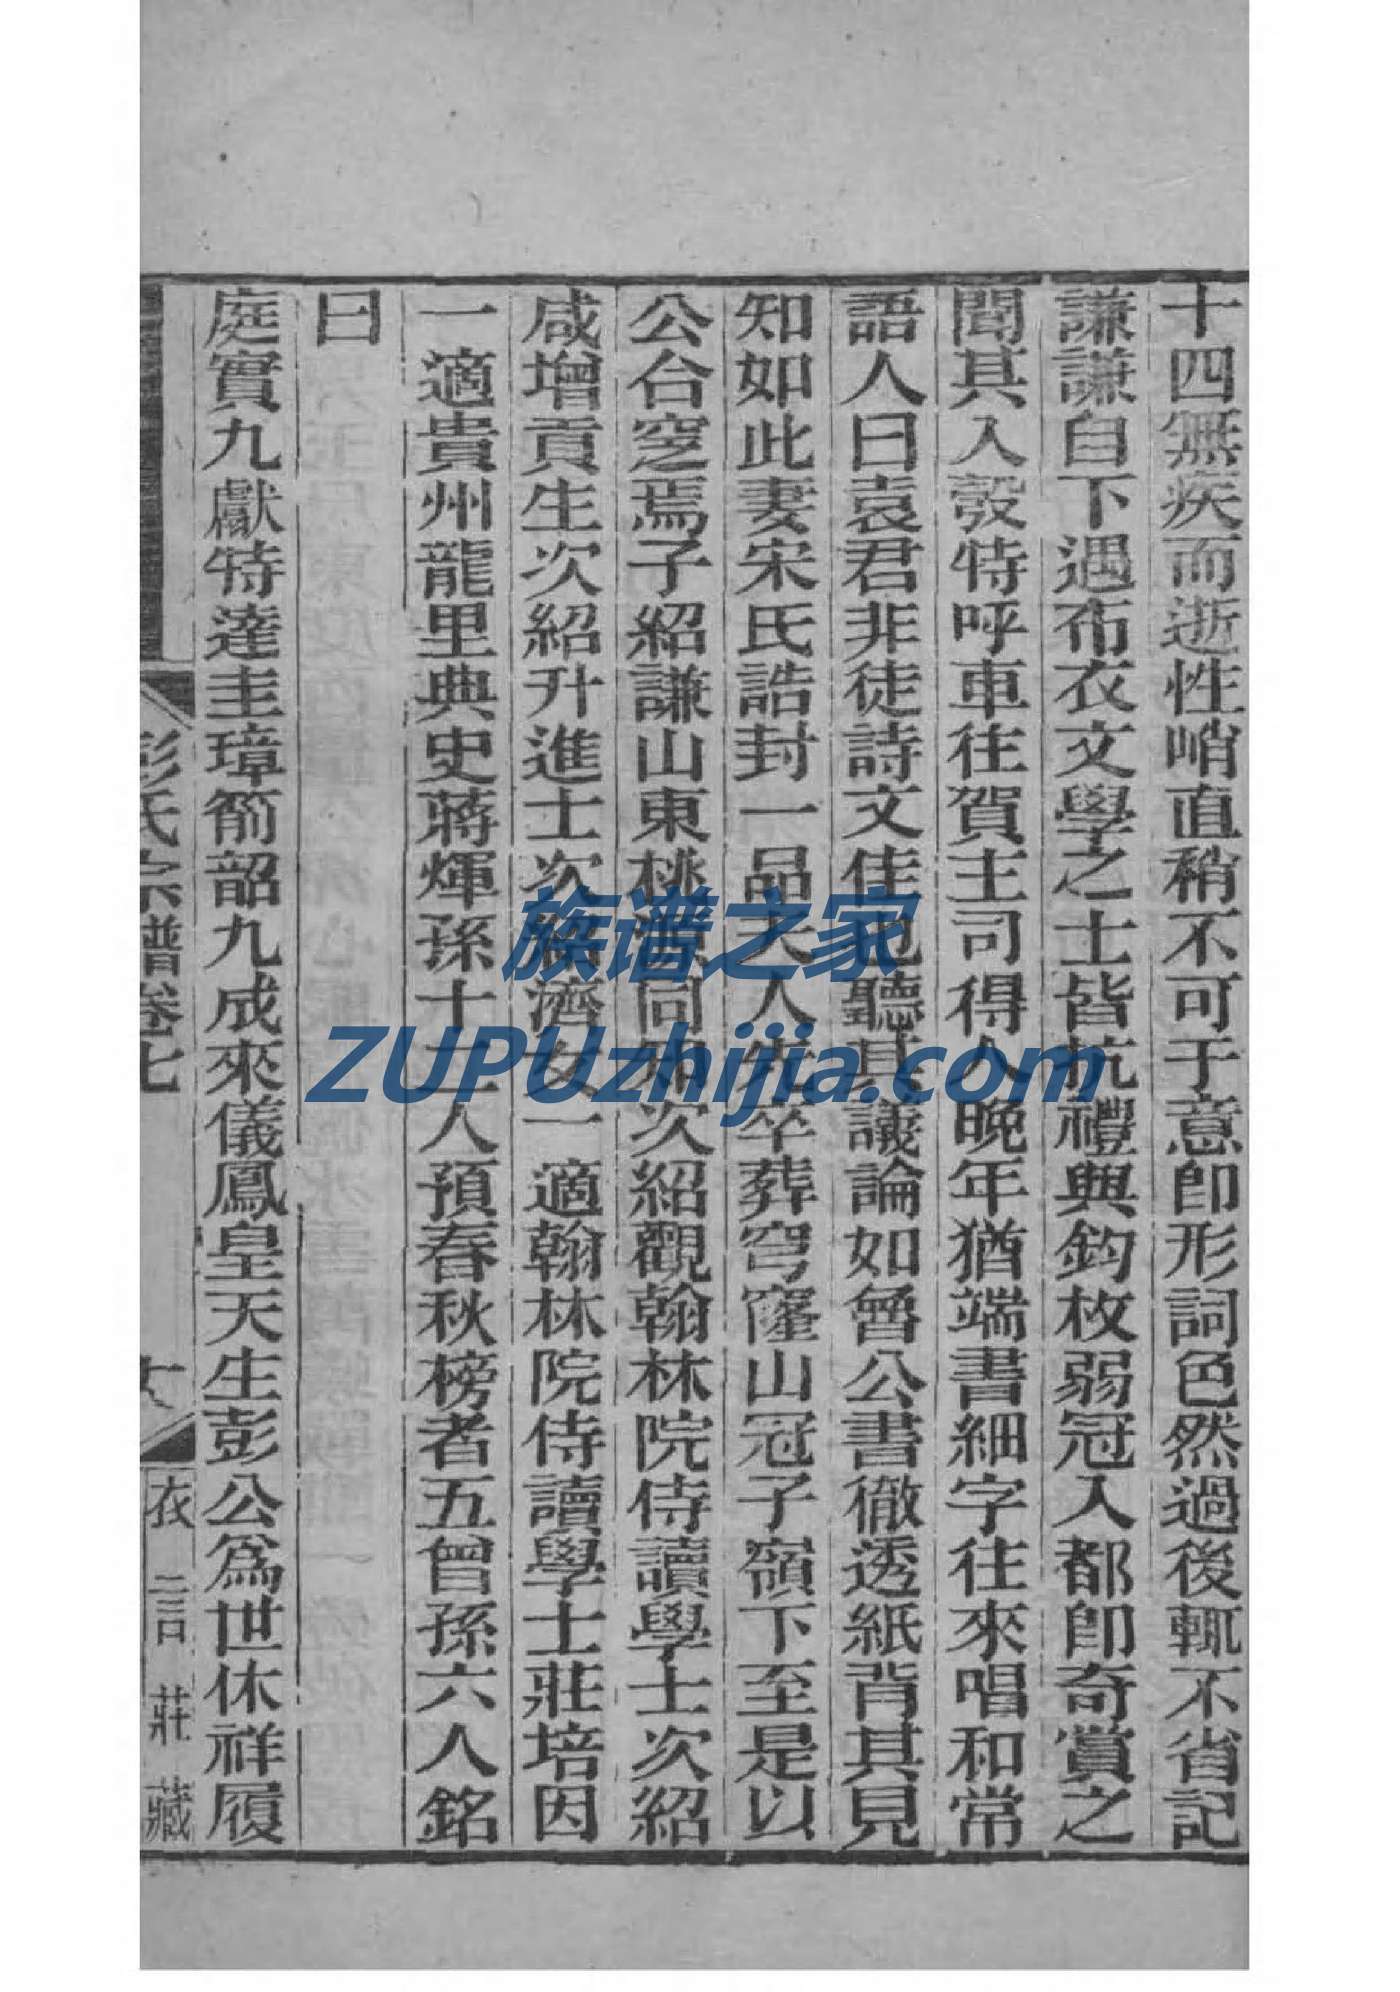 十四無疾而逝性峭直稍不可于意卽形詞色然過後輒不省記
謙謙自下遇布衣文學之士皆抗禮與鈞枚弱冠入都卽奇賞之
聞其入彀特呼車往賀主司得人晚年猶端書細字往來唱和常
語人曰袁君非徒詩文佳也聽其議論如魯公書徹透紙背其見
知如此妻宋氏誥封一品夫人先卒葬穹窿山冠子嶺下至是以
公合窆焉子紹謙山東桃源同知次紹觀翰林院侍讀學士次紹
咸增貢生次紹升進士次紹濟女一適翰林院侍讀學士莊培因
一適貴州龍里典史蔣煇孫十二人預春秋榜者五曾孫六人銘
曰
庭實九獻特達圭璋箾韶九成來儀鳳皇天生彭公爲世休祥履
彭氏宗譜卷七
衣言莊藏
族谱之家
ZUPUzhijia.com